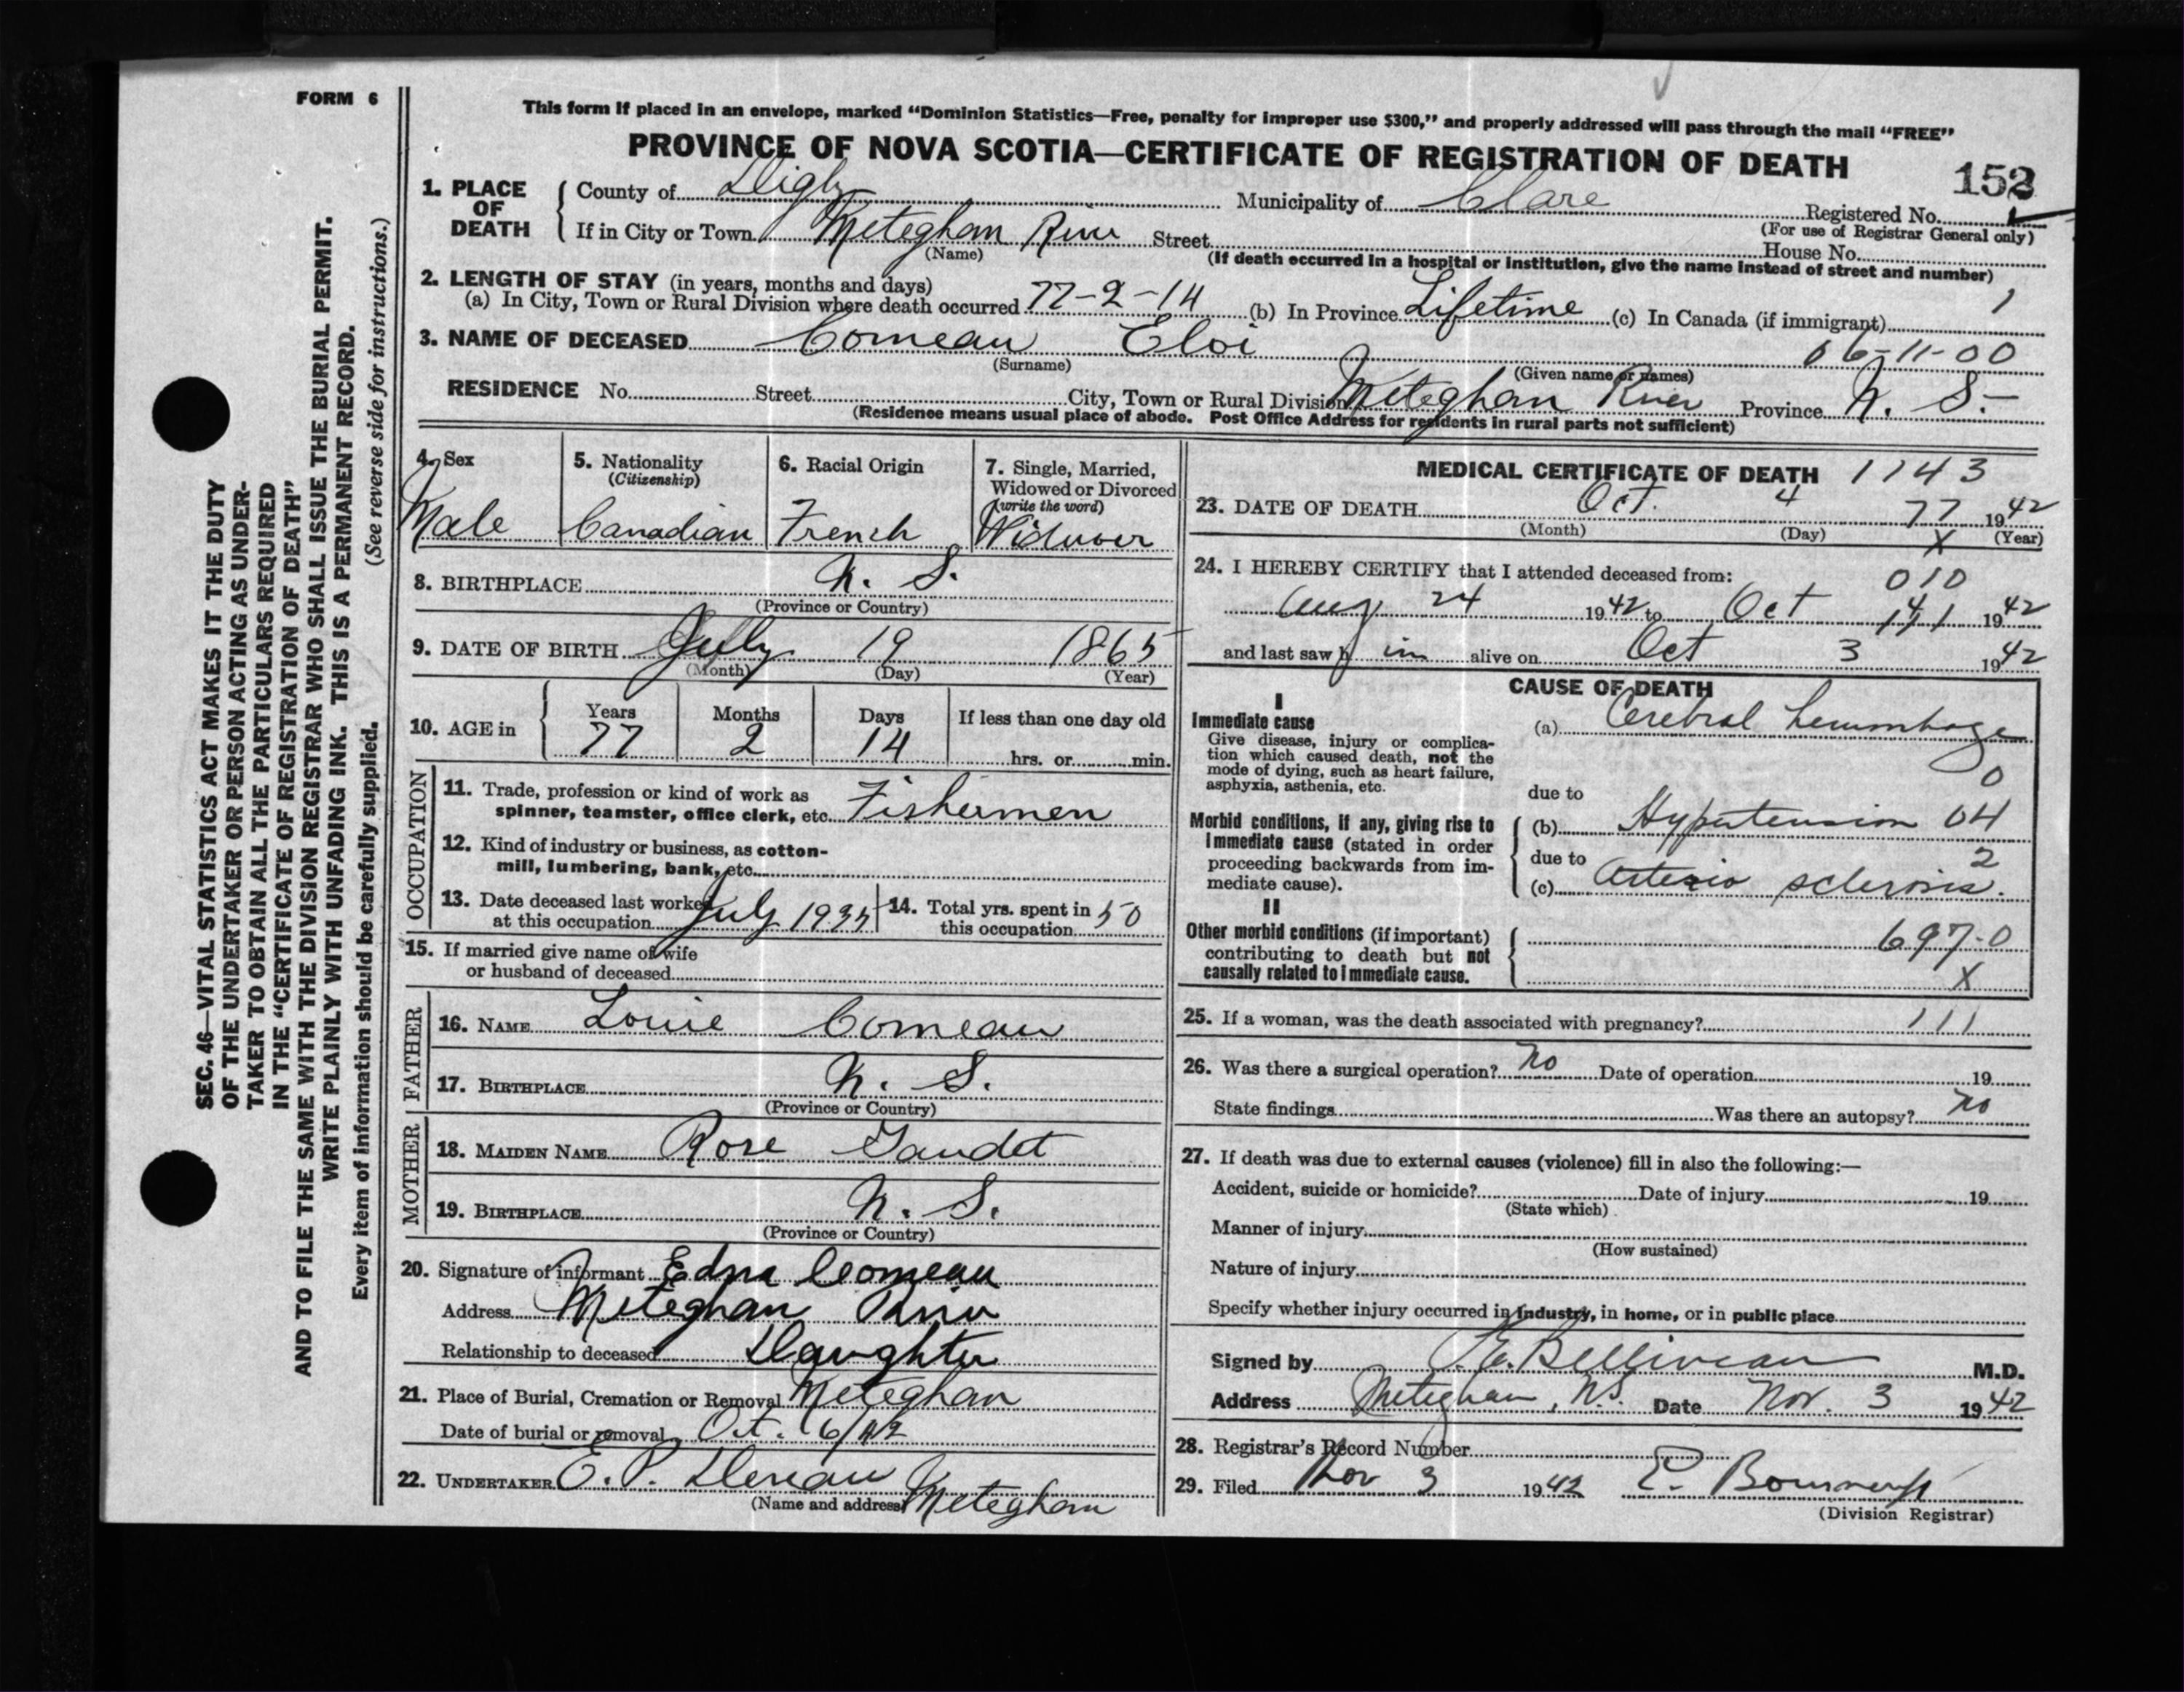 FORM 6
This form if placed in an envelope, marked "Dominion Statistics—Free, penalty for improper use $300," and properly addressed will pass through the mail "FREE"
PROVINCE OF NOVA SCOTIA—CERTIFICATE OF REGISTRATION OF DEATH
152
1. PLACE OF DEATH
County of Digby Municipality of Clare Registered No.
(For use of Registrar General only)
If in City or Town Meteghan River Street House No.
(Name) (If death occurred in a hospital or institution, give the name instead of street and number)
2. LENGTH OF STAY (in years, months and days)
(a) In City, Town or Rural Division where death occurred 77-2-14 (b) In Province Lifetime (c) In Canada (if immigrant) 1
3. NAME OF DECEASED Comeau Eloi 66-11-00
(Surname) (Given name or names)
RESIDENCE No. Street City, Town or Rural Division Meteghan River Province N. S.-
(Residence means usual place of abode. Post Office Address for residents in rural parts not sufficient)
4. Sex
Male
5. Nationality
(Citizenship)
Canadian
6. Racial Origin
French
7. Single, Married, Widowed or Divorced
(write the word)
Widower
8. BIRTHPLACE N. S.
(Province or Country)
9. DATE OF BIRTH July 19 1865
(Month) (Day) (Year)
10. AGE in Years Months Days If less than one day old
77 2 14 hrs. or min.
OCCUPATION
11. Trade, profession or kind of work as
spinner, teamster, office clerk, etc. Fishermen
12. Kind of industry or business, as cotton-
mill, lumbering, bank, etc.
13. Date deceased last worked
at this occupation July 1935
14. Total yrs. spent in
this occupation 50
15. If married give name of wife
or husband of deceased
FATHER
16. NAME Louie Comeau
17. BIRTHPLACE N. S.
(Province or Country)
MOTHER
18. MAIDEN NAME Rose Gaudet
19. BIRTHPLACE N. S.
(Province or Country)
20. Signature of informant Edna Comeau
Address Meteghan River
Relationship to deceased Daughter
21. Place of Burial, Cremation or Removal Meteghan
Date of burial or removal Oct. 6/42
22. UNDERTAKER E. P. Meteghan
(Name and address)
MEDICAL CERTIFICATE OF DEATH 1143
23. DATE OF DEATH Oct. 4 77 1942
(Month) (Day) X (Year)
24. I HEREBY CERTIFY that I attended deceased from: 010
Aug 24 1942 to Oct 1942
and last saw him alive on Oct 3 1942
CAUSE OF DEATH
I
Immediate cause
Give disease, injury or complica-
tion which caused death, not the
mode of dying, such as heart failure,
asphyxia, asthenia, etc.
(a) Cerebral hemmhage
0
due to
Morbid conditions, if any, giving rise to
immediate cause (stated in order
proceeding backwards from im-
mediate cause).
(b) Hypertension 04
due to 2
(c) Arterio sclerosis.
II
Other morbid conditions (if important)
contributing to death but not
causally related to immediate cause.
697-0
X
25. If a woman, was the death associated with pregnancy? 111
26. Was there a surgical operation? no Date of operation 19
State findings Was there an autopsy? no
27. If death was due to external causes (violence) fill in also the following:—
Accident, suicide or homicide? Date of injury 19
(State which)
Manner of injury
(How sustained)
Nature of injury
Specify whether injury occurred in industry, in home, or in public place
Signed by Belliveau M.D.
Address Meteghan, N.S. Date Nov. 3 1942
28. Registrar's Record Number
29. Filed Nov 3 1942 E.
(Division Registrar)
SEC. 46—VITAL STATISTICS ACT MAKES IT THE DUTY
OF THE UNDERTAKER OR PERSON ACTING AS UNDER-
TAKER TO OBTAIN ALL THE PARTICULARS REQUIRED
IN THE "CERTIFICATE OF REGISTRATION OF DEATH"
AND TO FILE THE SAME WITH THE DIVISION REGISTRAR WHO SHALL ISSUE THE BURIAL PERMIT.
WRITE PLAINLY WITH UNFADING INK. THIS IS A PERMANENT RECORD.
Every item of information should be carefully supplied. (See reverse side for instructions.)